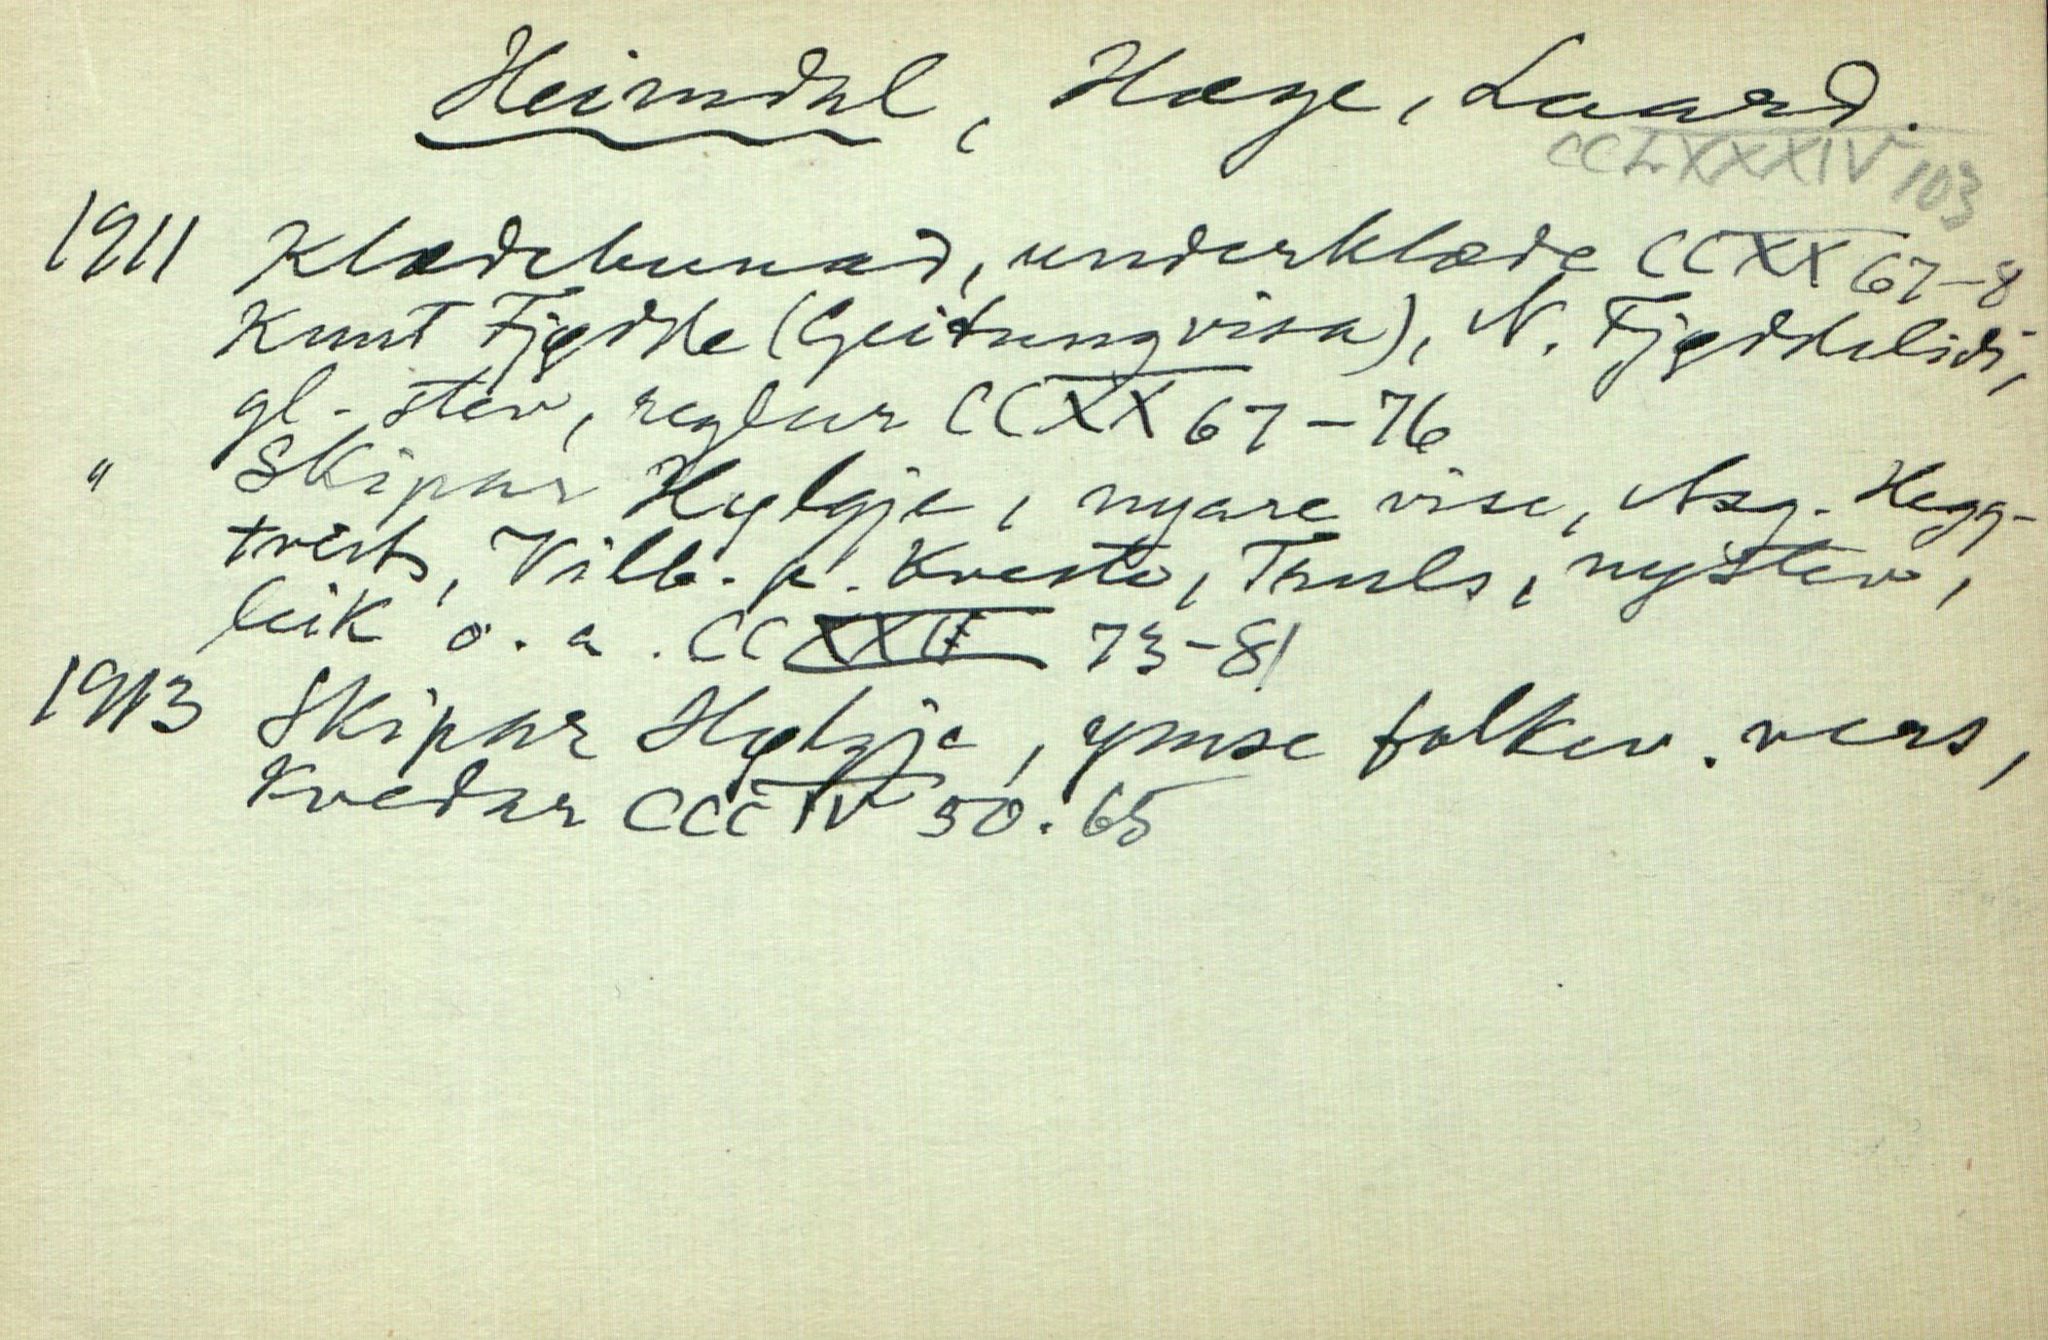 Heimdal, Hæge, Laard.
CCLXXXIV 103
1911 Klædebunad, underklæde CCXX 67-8
Knut Fjødde (Geitungvisa), N. Fjøddelidi,
gl. stev, reglur CCXX 67-76
" Skipar Hylgje, nyare vise, Asg. Hegg-
tveit, Villb. p. Kveste, Truls, nystev,
leik o.a. CCXXII 73-81
1913 Skipar Hylgje, ymse folkev. vers,
Kvedar CCCIV 50.65